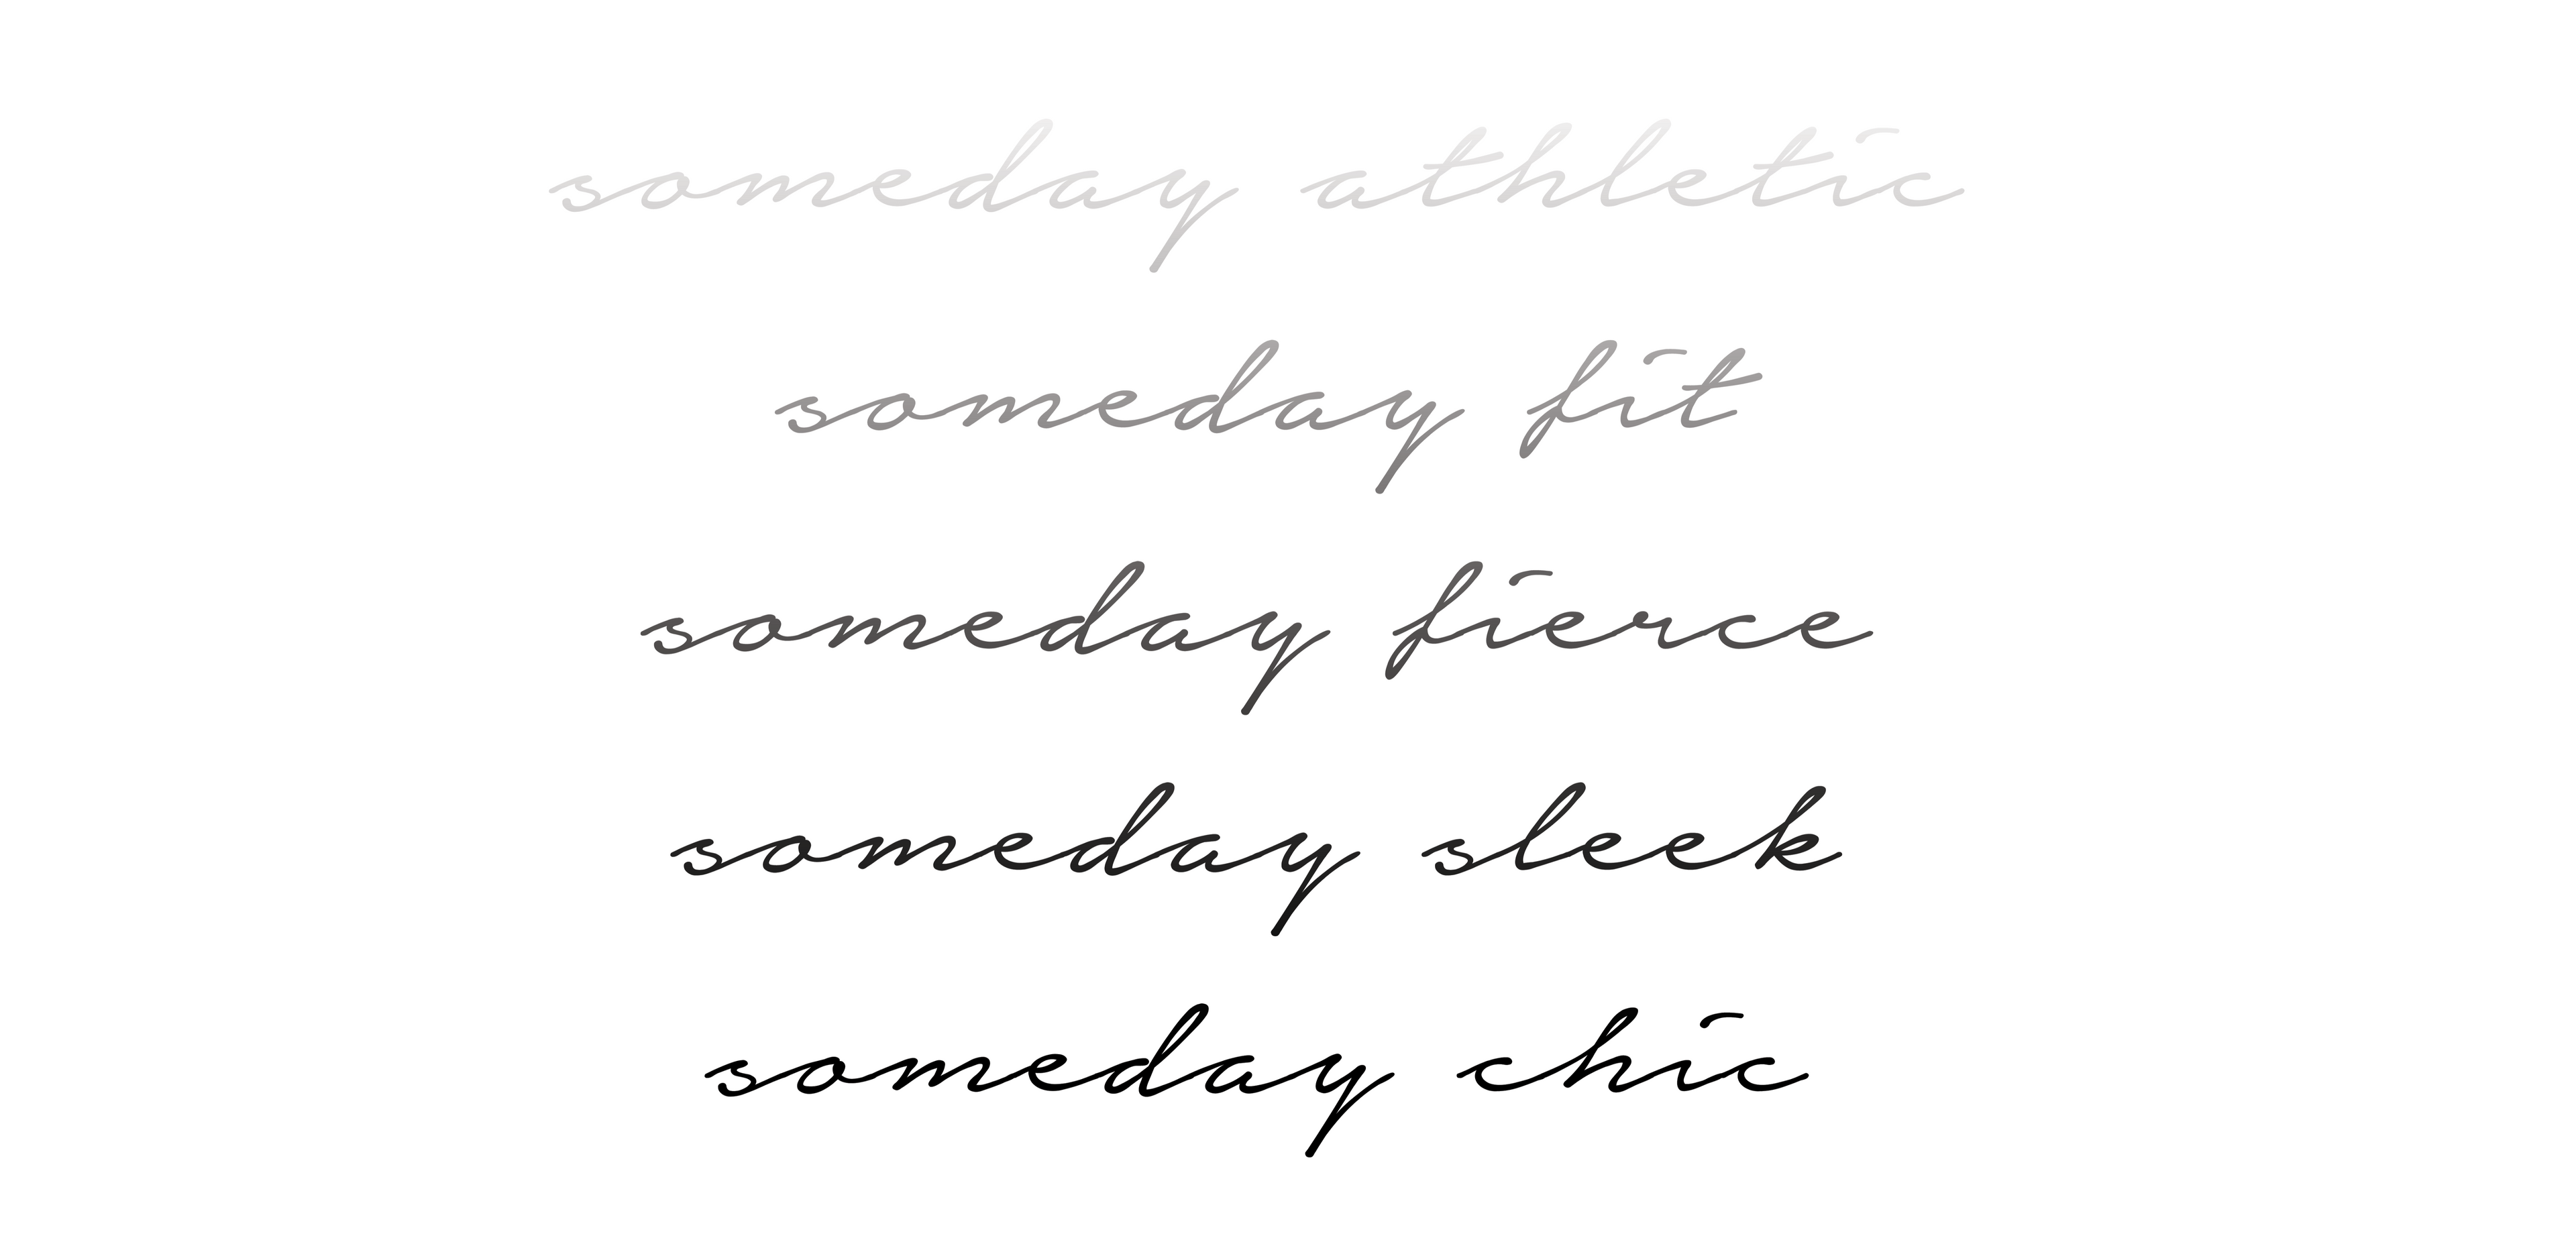 someday athletic
someday fit
someday fierce
someday sleek
someday chic